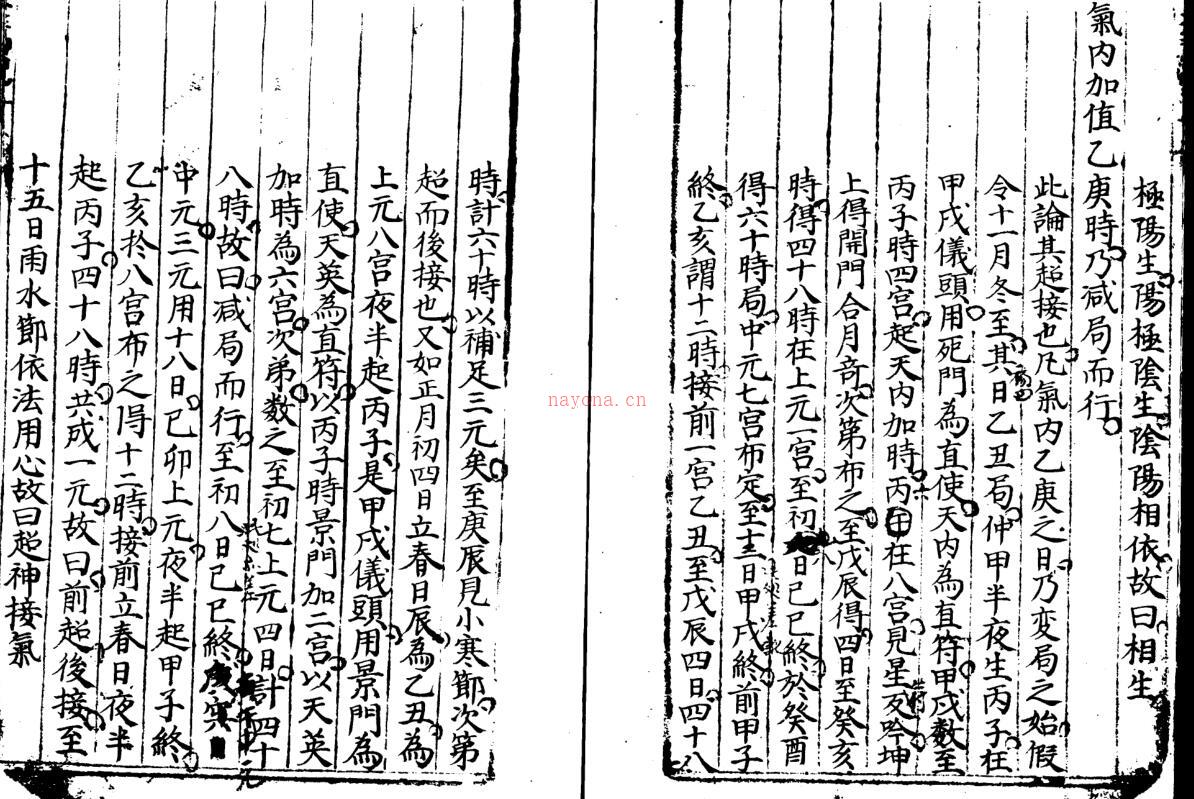 極陽生陽極陰生陰陽相依故曰相生
氣内加值乙庚時乃減局而行
此論其超接也凡氣内乙庚之日乃变局之始假
令十一月冬至其日乙丑局仲甲半夜生丙子在
甲戌儀頭用死門為直使天内為直符甲戌数至
丙子時四宫起天内加時丙在八宫見星反吟坤
上得開門合月竒次第布之至戊辰得四日至癸亥
時得四十八時在上元一宫至初日己巳終於癸酉
得六十時局中元七宫布定至十三日甲戌終前甲子
終乙亥謂十二時接前一宫乙丑至戊辰四日四十八
時計六十時以補足三元矣至庚辰見小寒節次第
超而後接也又如正月初四日立春日辰為乙丑為
上元八宫夜半起丙子是甲戌儀頭用景門為
直使天英為直符以丙子時景門加二宫以天英
加時為六宫次弟数之至初七上元四日計四十
八時故曰减局而行至初八日己巳終
中元三元用十八日己卯上元夜半起甲子終
乙亥扵八宫布之得十二時接前立春日夜半
起丙子四十八時共成一元故曰前超後接至
十五日雨水節依法用心故曰超神接氣
nayona.cn